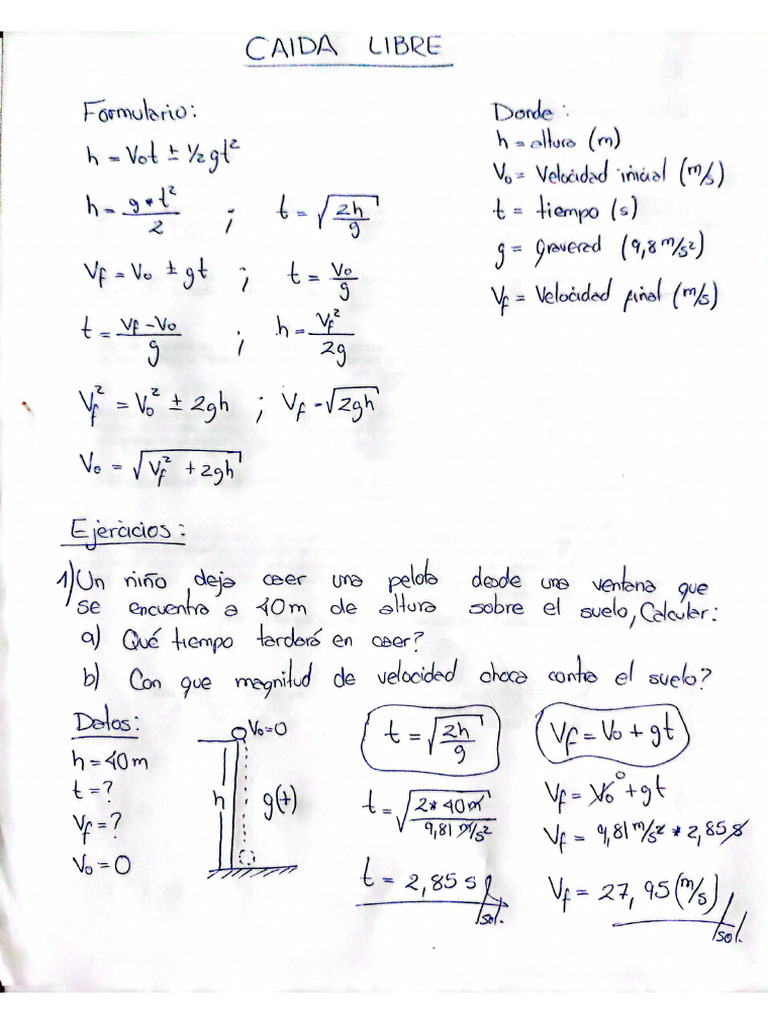 CAIDA LIBRE
Formulario:
h = Vot ± 1/2 gt²
h = g*t²/2 ; t = √(2h/g)
Vf = Vo ± gt ; t = Vo/g
t = (Vf - Vo)/g ; h = Vf²/2g
Vf² = Vo² ± 2gh ; Vf - √2gh
Vo = √(Vf² + 2gh)
Donde:
h = altura (m)
Vo = Velocidad inicial (m/s)
t = tiempo (s)
g = gravered (9,8 m/s²)
Vf = Velocidad final (m/s)
Ejercicios:
1) Un niño deja caer una pelota desde una ventana que
se encuentra a 40m de altura sobre el suelo, Calcular:
a) Qué tiempo tardará en caer?
b) Con que magnitud de velocidad choca contra el suelo?
Datos:
h = 40 m
t = ?
Vf = ?
Vo = 0
Vo = 0
h
g(+)
t = √(2h/g)
t = √(2*40m/9,81 m/s²)
t = 2,85 s
sol.
Vf = Vo + gt
Vf = Vo⁰ + gt
Vf = 9,81 m/s² * 2,85 s
Vf = 27,95 (m/s)
sol.